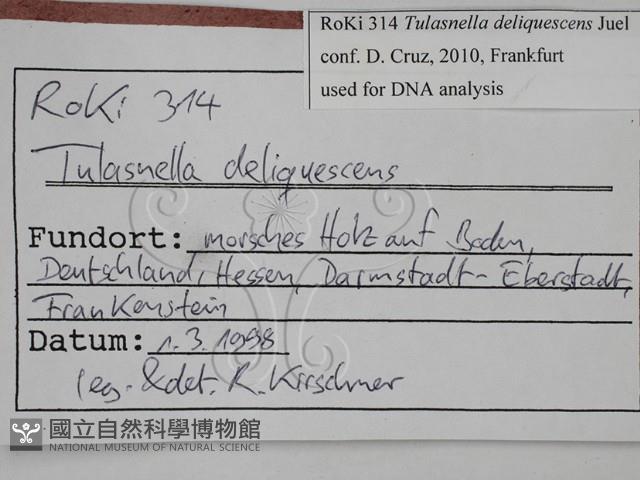 RoKi 314 Tulasnella deliquescens Juel
conf. D. Cruz, 2010, Frankfurt
used for DNA analysis
RoKi 314
Tulasnella deliquescens
Fundort: morsches Holz auf Boden,
Deutschland, Hessen, Darmstadt-Eberstadt,
Frankenstein
Datum: 1.3.1998
leg. & det. R. Kirschner
國立自然科學博物館
NATIONAL MUSEUM OF NATURAL SCIENCE